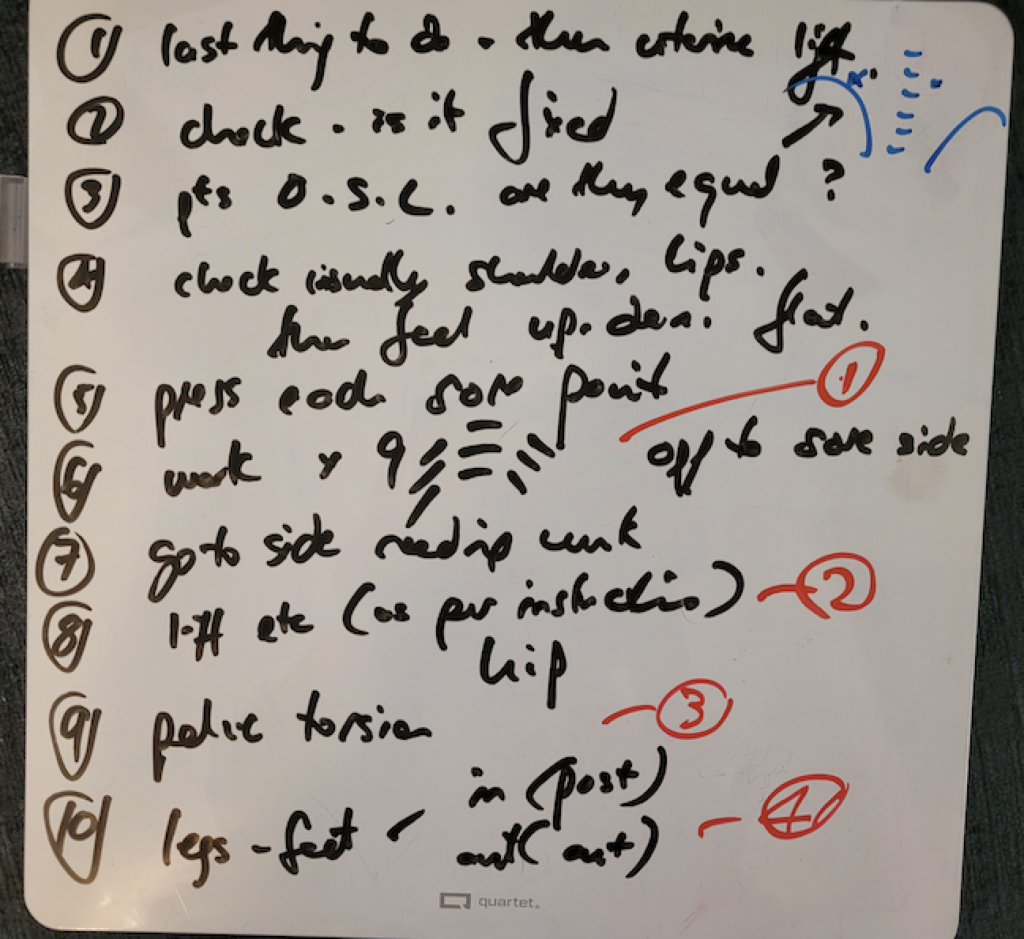 ① last thing to do - then exterine lift.
② check - is it fixed
③ pts O.S.C. are they equal ?
④ check visually shoulder, hips.
then feel up. down. flat.
⑤ press each sore point ①
⑥ work x 9 off to sore side
⑦ go to side needing work
⑧ lift etc (as per instruction) ②
hip
⑨ pelvic torsion ③
in (post)
⑩ legs - feet ④
out (ant)
quartet